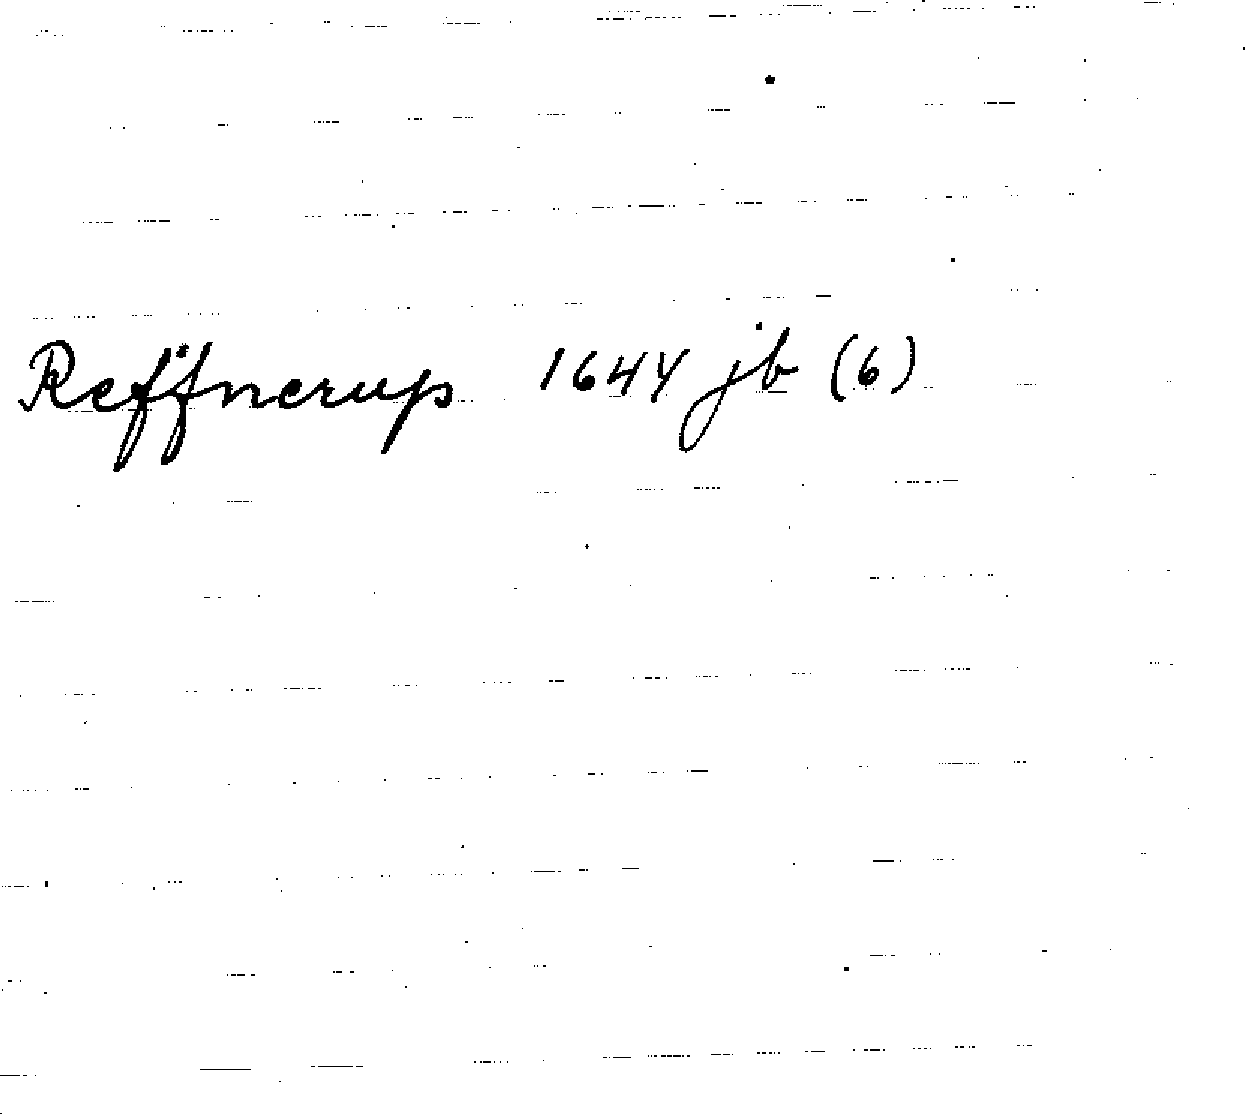 Reffnerup 1644 jb (6)